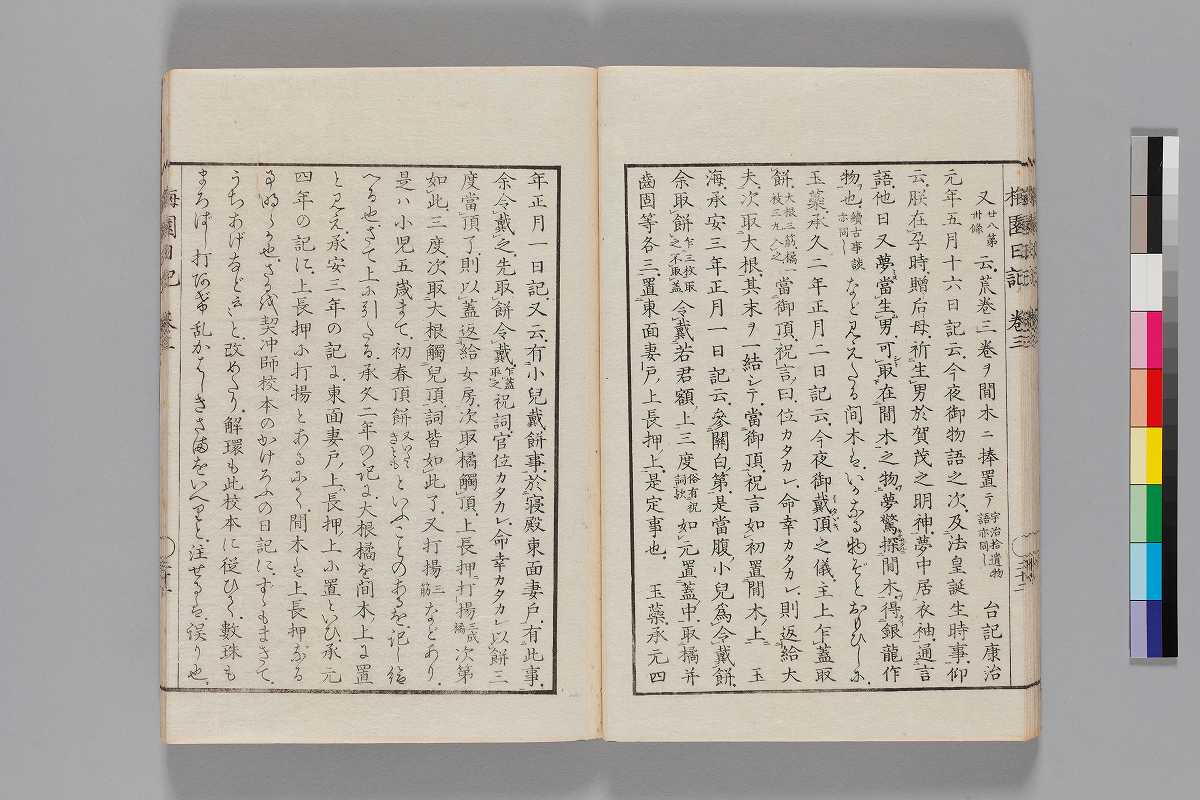 梅園日記 卷三
又廿八第卅條云、荒卷三卷ヲ間木ニ捧置テ宇治拾遺物語亦同し 台記康治
元年五月十六日記云、今夜御物語之次、及法皇誕生時事、仰
云、朕在孕時、贈后母、祈生男於賀茂之明神、夢中居衣袖、通言
語、他日又夢、當生男、可取在間木之物、夢驚探間木、得銀龍作
物也、續古事談亦同し など見えたる間木は、いかなる物ぞとおもひしに、
玉藥、承久二年正月二日記云、今夜御戴頂之儀、主上乍蓋取
餅、大根三茄橘一枝三九入之 當御頂、祝言曰、位カタカレ、命幸カタカレ、則返給大
夫、次取大根、其末ヲ一結シテ、當御頂、祝言如初、置間木上、 玉
海、承安三年正月一日記云、參關白第、是當腹小兒爲令戴餅、
余取餅乍三枚取之不取蓋 令戴若君額上三度俗有祝詞歟 如元置蓋中、取橘并
齒固等各三、置東面妻戶上長押上、是定事也、 玉藥、承元四
年正月一日記、又云、有小兒戴餅事、於寢殿東面妻戶有此事、
余令戴之、先取餅令戴乍蓋取之 祝詞、官位カタカレ、命幸カタカレ、以餅三
度當頂了、則以蓋返給女房、次取橘觸頂、上長押打揚三成橘 次第
如此三度、次取大根觸兒頂、詞皆如此了、又打揚三筋 などあり、
是ハ小児五歳まて、初春頂餅 といふことのあるを、記し給
へる也、さて上に引たる、承久二年の記に、大根橘を间木上に置
と見え、承安三年の記に、東面妻戶上長押上に置といひ、承元
四年の記に、上長押に打揚とあるにて、間木は上長押なる
うちあげなどきと、改めたり、解環も此校本に従ひて、數珠も
まろばし打 乱かはしきさまをいへりと注せるは、誤り也、
梅園日記 卷三